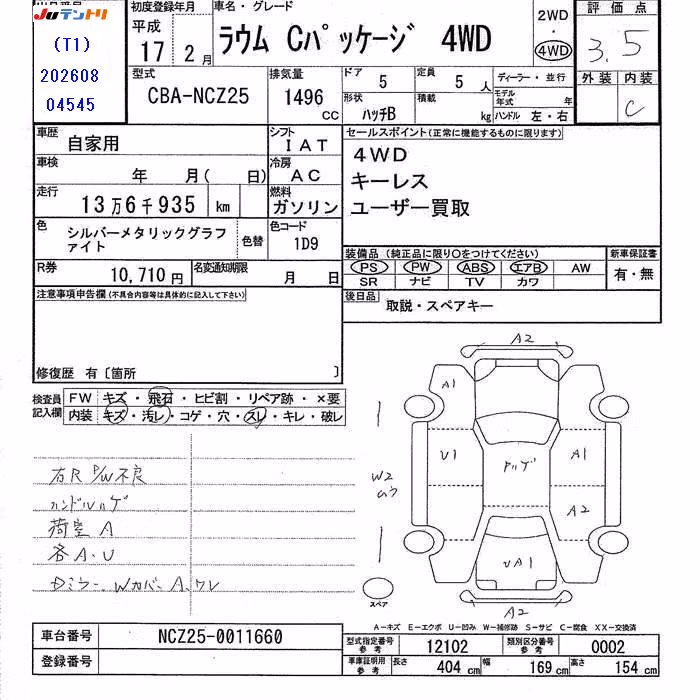 JUテントリ
(T1)
202608
04545
初度登録年月
平成
17 2月
車名・グレード
ラウム Cパッケージ 4WD
2WD
・
4WD
評価点
3.5
型式
CBA-NCZ25
排気量
1496
cc
ドア
5
定員
5人
形状
ハッチB
積載
kg
ディーラー・並行
モデル年式 年
ハンドル 左・右
外装 内装
C
車歴
自家用
シフト
IAT
セールスポイント(正常に機能するものに限ります)
4WD
キーレス
ユーザー買取
車検
年 月( 日)
冷房
AC
走行
13万6千935 km
燃料
ガソリン
色
シルバーメタリックグラファイト
色替
色コード
1D9
装備品(純正品に限り○をつけてください)
PS PW ABS エアB AW
SR ナビ TV カワ
新車保証書
有・無
R券
10,710円
名変通知期限
月 日
後日品
取説・スペアキー
注意事項申告欄(不具合内容等は具体的に記入して下さい)
修復歴 有〔箇所 〕
検査員記入欄
FW キズ・飛石・ヒビ割・リペア跡・×要
内装 キズ・汚レ・コゲ・穴・スレ・キレ・破レ
右R P/W不良
ハンドルハゲ
荷室A
各A・U
Dミラー、Wカバー A、ワレ
A2
A1
U1
ハゲ
A1
W2
A2
UA1
A2
スペア
A-キズ E-エクボ U-凹み W-補修跡 S-サビ C-腐食 XX-交換済
車台番号
NCZ25-0011660
登録番号
型式指定番号
参考
12102
類別区分番号
参考
0002
車庫証明用
参考
長さ
404 cm
幅
169 cm
高さ
154 cm